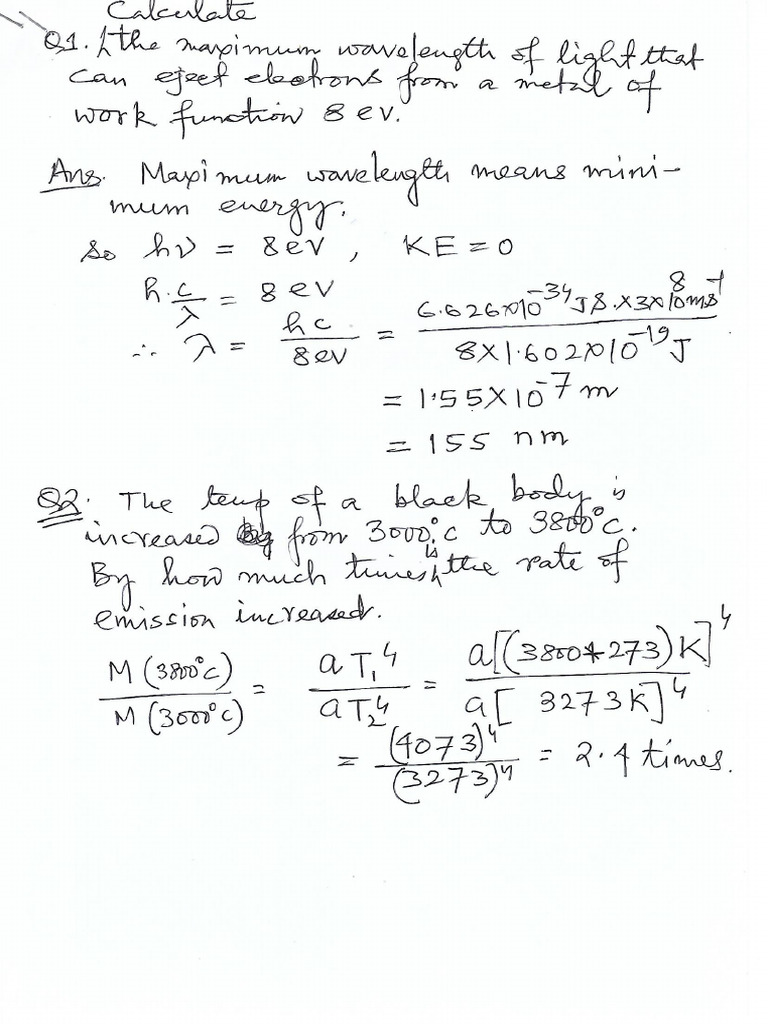 Calculate
Q1. the maximum wavelength of light that
can eject electrons from a metal of
work function 8 ev.
Ans. Maximum wavelength means mini-
mum energy.
So hν = 8 eV, KE = 0
h.c/λ = 8 eV
∴ λ = hc/8eV = 6.626×10⁻³⁴JS.×3×10⁸ms⁻¹/8×1.602×10⁻¹⁹J
= 1.55×10⁻⁷ m
= 155 nm
Q2. The temp of a black body is
increased from 3000°C to 3800°C.
By how much times is the rate of
emission increased.
M(3800°C)/M(3000°C) = aT₁⁴/aT₂⁴ = a[(3800+273)K]⁴/a[3273K]⁴
= (4073)⁴/(3273)⁴ = 2.4 times.